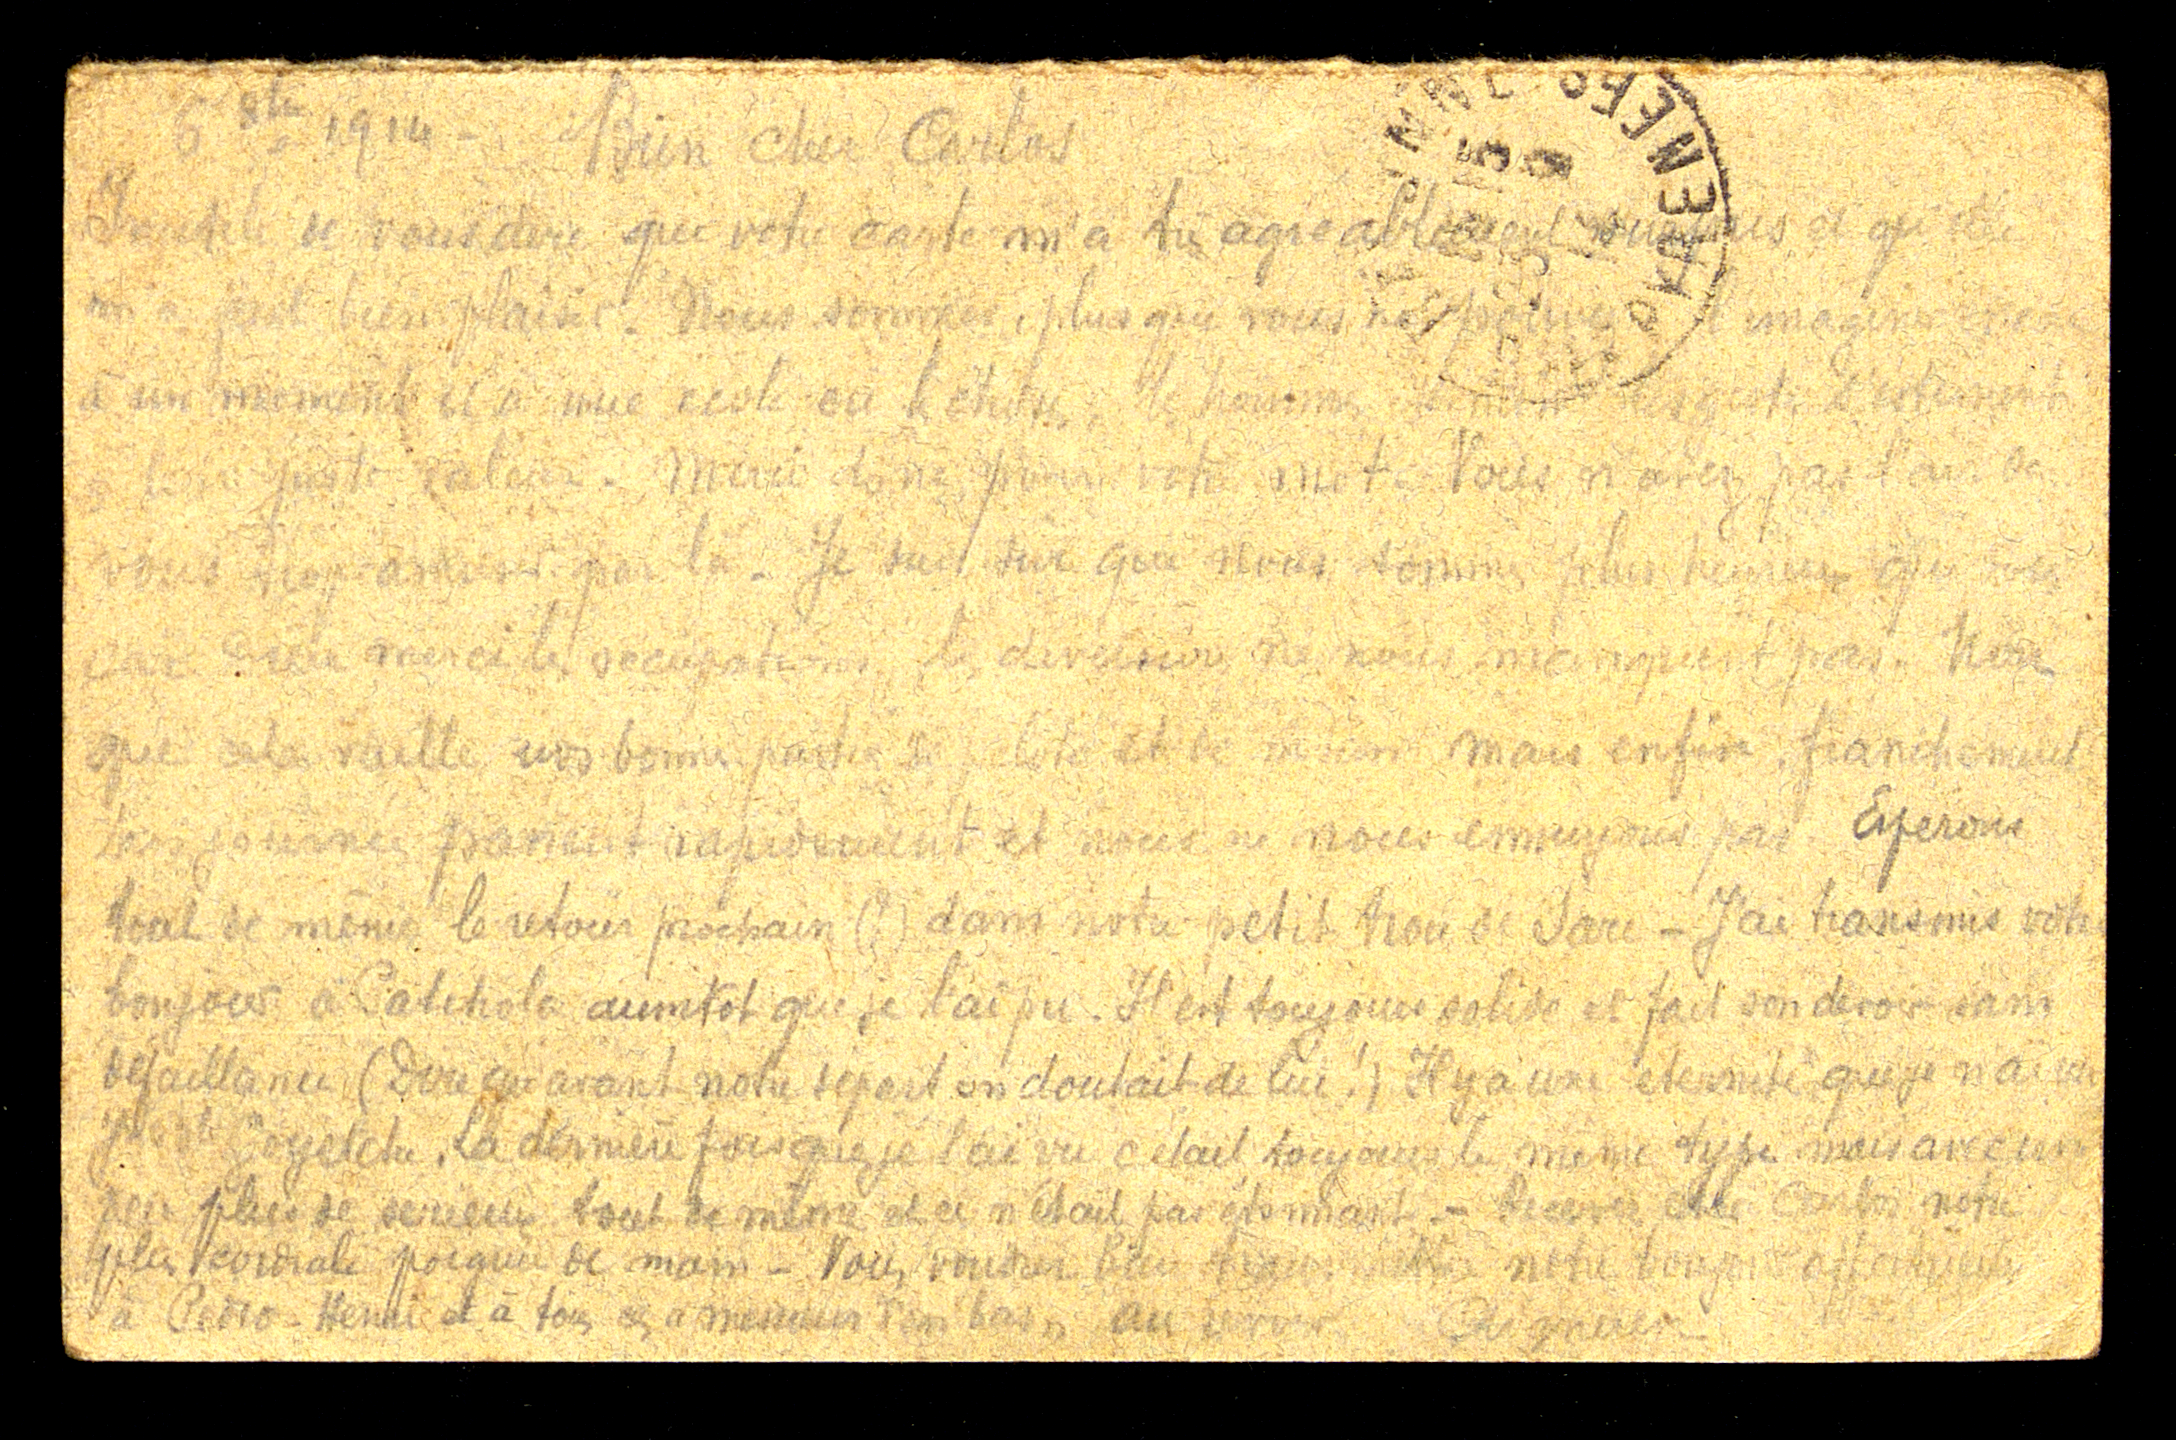 6 8bre 1914 - Bien cher Carlos
Inutile de vous dire que votre carte m'a très agréablement surpris et qu'elle
m'a fait bien plaisir. Nous sommes, plus que vous ne pouvez l'imaginer
à un moment et à une école où les choses, les hommes les gestes s'estiment
à leur juste valeur. Merci donc pour votre mot. Vous n'avez pas l'air de
vous par là - Je suis sûr que nous sommes plus heureux que vous
car Dieu merci les occupations, les diversions ne nous manquent pas. Non
que cela vaille vos bonnes parties de pelote et de mais enfin, franchement
journées passent rapidement et nous ne nous ennuyons pas. Esperons
tout de même le retour prochain (?) dans notre petit trou de Sare - J'ai transmis votre
bonjour à Patchola aussitot que je l'ai pu. Il est toujours solide et fait son devoir sans
defaillance (Dire qu'avant notre départ on doutait de lui !) Il y a une eternité que je n'ai vu
Goyetche. La dernière fois que je l'ai vu c'était toujours le même type mais avec un
peu plus de serieux tout de même et ce n'était pas étonnant. - Recevez cher Carlos notre
plus cordiale poignée de main - Vous voudrez bien transmettre notre bonjour affectueux
à Pedro - Henri et à tous ces messieurs Au revoir